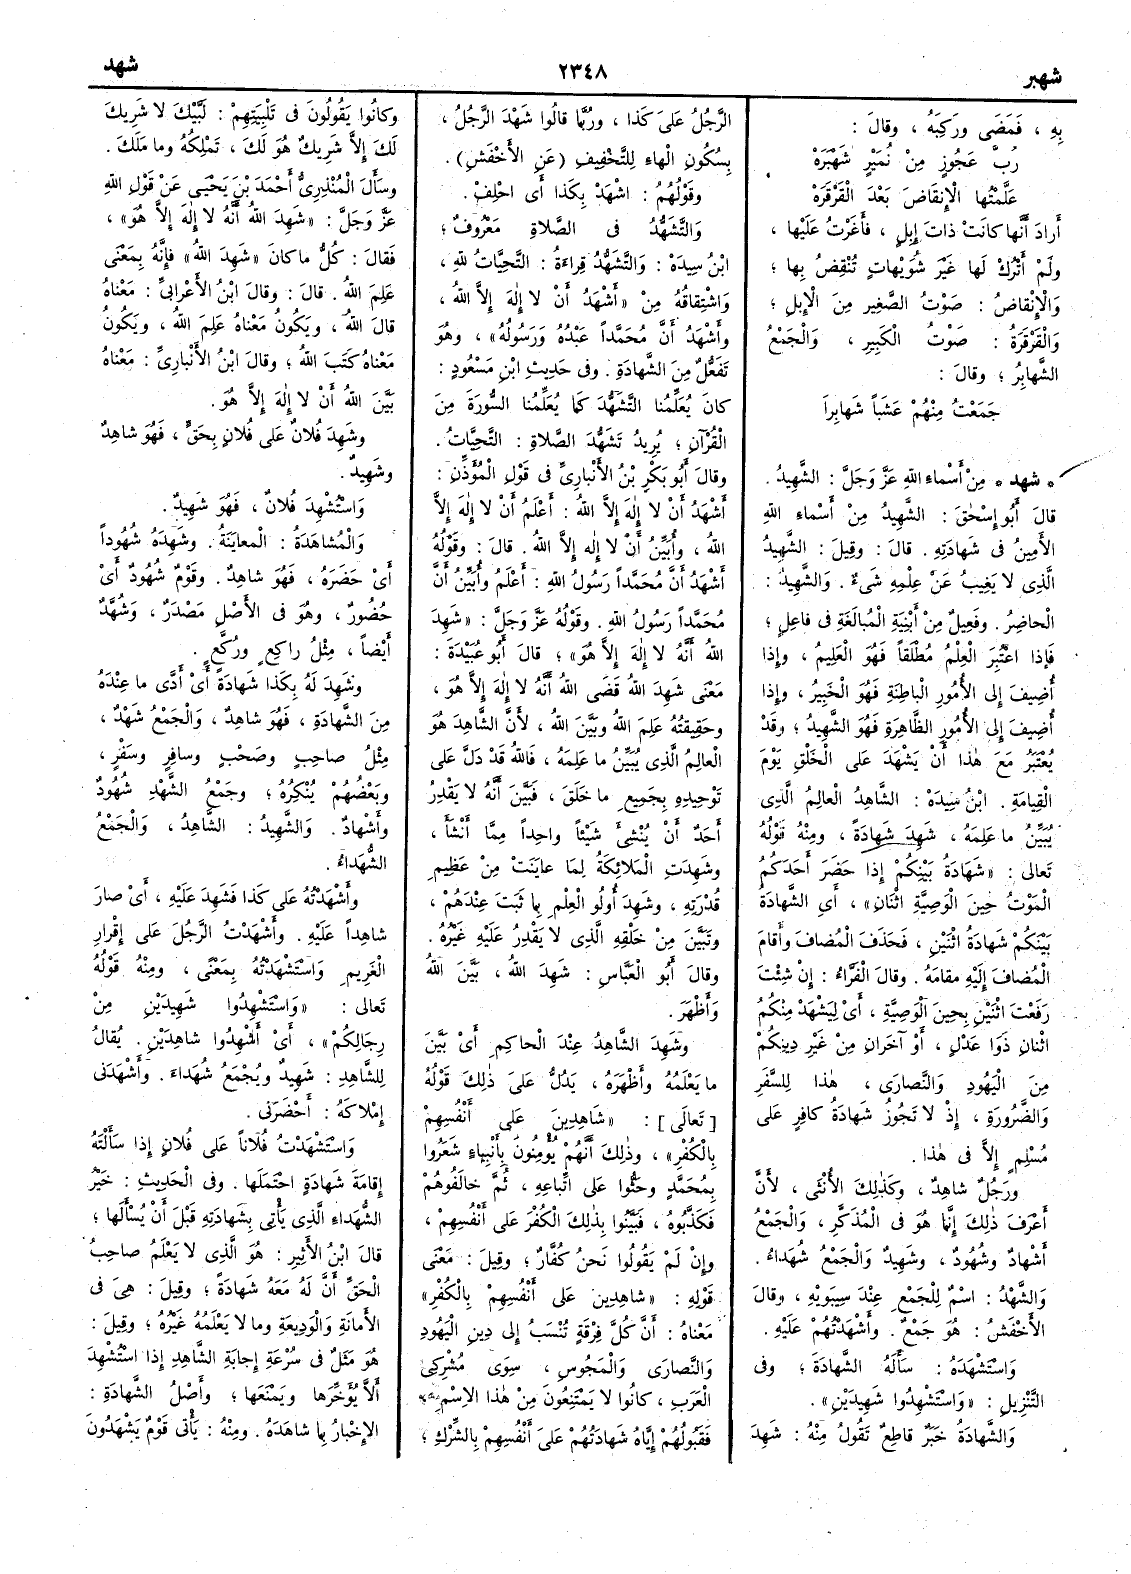 شهبر
٢٣٤٨
شهد
بِهِ ، فَمَضَى وَرَكِبَهُ ، وقالَ :
رُبَّ عَجُوزٍ مِنْ نُمَيْرٍ شَهْبَرَهْ
عَلَّمْتُها الْإِنْقاضَ بَعْدَ الْقَرْقَرَهْ
أَرادَ أَنَّها كانَتْ ذاتَ إِبِلٍ ، فَأَغَرْتُ عَلَيْها ،
ولَمْ أَتْرُكْ لَها غَيْرَ شُوَيْهاتٍ تُنْقِضُ بِها ؛
وَالْإِنْقاضُ : صَوْتُ الصَّغِيرِ مِنَ الْإِبِلِ ؛
وَالْقَرْقَرَةُ : صَوْتُ الْكَبِيرِ ، وَالْجَمْعُ
الشَّهابِرُ ؛ وقالَ :
جَمَعْتُ مِنْهُمْ عَشَباً شَهابِرا
• شهد • مِنْ أَسْماءِ اللهِ عَزَّ وَجَلَّ : الشَّهِيدُ .
قالَ أَبُو إِسْحٰقَ : الشَّهِيدُ مِنْ أَسْماءِ اللهِ
الْأَمِينُ فى شَهادَتِهِ . قالَ : وقِيلَ : الشَّهِيدُ
الَّذِى لا يَغِيبُ عَنْ عِلْمِهِ شَىْءٌ . وَالشَّهِيدُ :
الْحاضِرُ . وفَعِيلٌ مِنْ أَبْنِيَةِ الْمُبالَغَةِ فى فاعِلٍ ؛
فَإِذا اعْتُبِرَ الْعِلْمُ مُطْلَقاً فَهُوَ الْعَلِيمُ ، وإِذا
أُضِيفَ إِلَى الْأُمُورِ الْباطِنَةِ فَهُوَ الْخَبِيرُ ، وإِذا
أُضِيفَ إِلَى الْأُمُورِ الظَّاهِرَةِ فَهُوَ الشَّهِيدُ ؛ وقَدْ
يُعْتَبَرُ مَعَ هٰذا أَنْ يَشْهَدَ عَلَى الْخَلْقِ يَوْمَ
الْقِيامَةِ . ابْنُ سِيدَهْ : الشَّاهِدُ الْعالِمُ الَّذِى
يُبَيِّنُ ما عَلِمَهُ ، شَهِدَ شَهادَةً ، ومِنْهُ قَوْلُهُ
تَعالَى : «شَهادَةُ بَيْنِكُمْ إِذا حَضَرَ أَحَدَكُمُ
الْمَوْتُ حِينَ الْوَصِيَّةِ اثْنانِ» ، أَىِ الشَّهادَةُ
بَيْنَكُمْ شَهادَةُ اثْنَيْنِ ، فَحَذَفَ الْمُضافَ وأَقامَ
الْمُضافَ إِلَيْهِ مقامَهُ . وقالَ الْفَرَّاءُ : إِنْ شِئْتَ
رَفَعْتَ اثْنَيْنِ بِحِينَ الْوَصِيَّةِ ، أَىْ لِيَشْهَدْ مِنْكُمُ
اثْنانِ ذَوَا عَدْلٍ ، أَوْ آخَرانِ مِنْ غَيْرِ دِينِكُمْ
مِنَ الْيَهُودِ وَالنَّصارَى ، هٰذا لِلسَّفَرِ
وَالضَّرُورَةِ ، إِذْ لا تَجُوزُ شَهادَةُ كافِرٍ عَلَى
مُسْلِمٍ إِلَّا فى هٰذا .
ورَجُلٌ شاهِدٌ ، وكَذٰلِكَ الْأُنْثَى ، لِأَنَّ
أَعْرَفَ ذٰلِكَ إِنَّما هُوَ فى الْمُذَكَّرِ ، وَالْجَمْعُ
أَشْهادٌ وشُهُودٌ ، وشَهِيدٌ وَالْجَمْعُ شُهَداءُ .
وَالشَّهْدُ : اسْمٌ لِلْجَمْعِ عِنْدَ سِيبَوَيْهِ ، وقالَ
الْأَخْفَشُ : هُوَ جَمْعٌ . وأَشْهَدْتُهُمْ عَلَيْهِ .
وَاسْتَشْهَدَهُ : سَأَلَهُ الشَّهادَةَ ؛ وفى
التَّنْزِيلِ : «وَاسْتَشْهِدُوا شَهِيدَيْنِ» .
وَالشَّهادَةُ خَبَرٌ قاطِعٌ تَقُولُ مِنْهُ : شَهِدَ
الرَّجُلُ عَلَى كَذا ، ورُبَّما قالُوا شَهْدَ الرَّجُلُ ،
بِسُكُونِ الْهاءِ لِلتَّخْفِيفِ (عَنِ الْأَخْفَشِ) .
وقَوْلُهُمُ : اشْهَدْ بِكَذا أَىِ احْلِفْ .
وَالتَّشَهُّدُ فى الصَّلاةِ مَعْرُوفٌ ؛
ابْنُ سِيدَهْ : وَالتَّشَهُّدُ قِراءَةُ : التَّحِيَّاتُ لِلهِ ،
وَاشْتِقاقُهُ مِنْ «أَشْهَدُ أَنْ لا إِلٰهَ إِلَّا اللهُ ،
وأَشْهَدُ أَنَّ مُحَمَّداً عَبْدُهُ وَرَسُولُهُ» ، وهُوَ
تَفَعُّلٌ مِنَ الشَّهادَةِ . وفى حَدِيثِ ابْنِ مَسْعُودٍ :
كانَ يُعَلِّمُنا التَّشَهُّدَ كَما يُعَلِّمُنا السُّورَةَ مِنَ
الْقُرْآنِ ؛ يُرِيدُ تَشَهُّدَ الصَّلاةِ : التَّحِيَّاتُ .
وقالَ أَبُو بَكْرٍ بْنُ الْأَنْبارِىِّ فى قَوْلِ الْمُؤَذِّنِ :
أَشْهَدُ أَنْ لا إِلٰهَ إِلَّا اللهُ : أَعْلَمُ أَنْ لا إِلٰهَ إِلَّا
اللهُ ، وأُبَيِّنُ أَنْ لا إِلٰه إِلَّا اللهُ . قالَ : وقَوْلُهُ
أَشْهَدُ أَنَّ مُحَمَّداً رَسُولُ اللهِ : أَعْلَمُ وأُبَيِّنُ أَنَّ
مُحَمَّداً رَسُولُ اللهِ . وقَوْلُهُ عَزَّ وَجَلَّ : «شَهِدَ
اللهُ أَنَّهُ لا إِلٰهَ إِلَّا هُوَ» ؛ قالَ أَبُو عُبَيْدَةَ :
مَعْنَى شَهِدَ اللهُ قَضَى اللهُ أَنَّهُ لا إِلٰهَ إِلَّا هُوَ ،
وحَقِيقَتُهُ عَلِمَ اللهُ وبَيَّنَ اللهُ ، لِأَنَّ الشَّاهِدَ هُوَ
الْعالِمُ الَّذِى يُبَيِّنُ ما عَلِمَهُ ، فَاللهُ قَدْ دَلَّ عَلَى
تَوْحِيدِهِ بِجَمِيعِ ما خَلَقَ ، فَبَيَّنَ أَنَّهُ لا يَقْدِرُ
أَحَدٌ أَنْ يُنْشِئَ شَيْئاً واحِداً مِمَّا أَنْشَأَ ،
وشَهِدَتِ الْمَلائِكَةُ لِما عايَنَتْ مِنْ عَظِيمِ
قُدْرَتِهِ ، وشَهِدَ أُولُو الْعِلْمِ بِما ثَبَتَ عِنْدَهُمْ ،
وتَبَيَّنَ مِنْ خَلْقِهِ الَّذِى لا يَقْدِرُ عَلَيْهِ غَيْرُهُ .
وقالَ أَبُو الْعَبَّاسِ : شَهِدَ اللهُ ، بَيَّنَ اللهُ
وَأَظْهَرَ .
وشَهِدَ الشَّاهِدُ عِنْدَ الْحاكِمِ أَىْ بَيَّنَ
ما يَعْلَمُهُ وأَظْهَرَهُ ، يَدُلُّ عَلَى ذٰلِكَ قَوْلُهُ
[ تَعالَى ] : «شاهِدِينَ عَلَى أَنْفُسِهِمْ
بِالْكُفْرِ» ، وذٰلِكَ أَنَّهُمْ يُؤْمِنُونَ بِأَنْبِياءٍ شَعَرُوا
بِمُحَمَّدٍ وحَثُّوا عَلَى اتِّباعِهِ ، ثُمَّ خالَفُوهُمْ
فَكَذَّبُوهُ ، فَبَيَّنُوا بِذٰلِكَ الْكُفْرَ عَلَى أَنْفُسِهِمْ ،
وإِنْ لَمْ يَقُولُوا نَحْنُ كُفَّارٌ ؛ وقِيلَ : مَعْنَى
قَوْلِهِ : «شاهِدِينَ عَلَى أَنْفُسِهِمْ بِالْكُفْرِ»
مَعْناهُ : أَنَّ كُلَّ فِرْقَةٍ تُنْسَبُ إِلى دِينِ الْيَهُودِ
وَالنَّصارَى وَالْمَجُوسِ ، سِوَى مُشْرِكِى
الْعَرَبِ ، كانُوا لا يَمْتَنِعُونَ مِنْ هٰذا الِاسْمِ ،
فَقَبُولُهُمْ إِيَّاهُ شَهادَتُهُمْ عَلَى أَنْفُسِهِمْ بِالشِّرْكِ ؛
وكانُوا يَقُولُونَ فى تَلْبِيَتِهِمْ : لَبَّيْكَ لا شَرِيكَ
لَكَ إِلَّا شَرِيكٌ هُوَ لَكَ ، تَمْلِكُهُ وما مَلَكَ .
وسأَلَ الْمُنْذِرِىُّ أَحْمَدَ بْنَ يَحْيَى عَنْ قَوْلِ اللهِ
عَزَّ وَجَلَّ : «شَهِدَ اللهُ أَنَّهُ لا إِلٰهَ إِلَّا هُوَ» ،
فَقالَ : كُلُّ ما كانَ «شَهِدَ اللهُ» فَإِنَّهُ بِمَعْنَى
عَلِمَ اللهُ . قالَ : وقالَ ابْنُ الْأَعْرابِىِّ : مَعْناهُ
قالَ اللهُ ، ويَكُونُ مَعْناهُ عَلِمَ اللهُ ، ويَكُونُ
مَعْناهُ كَتَبَ اللهُ ؛ وقالَ ابْنُ الْأَنْبارِىِّ : مَعْناهُ
بَيَّنَ اللهُ أَنْ لا إِلٰهَ إِلَّا هُوَ .
وشَهِدَ فُلانٌ عَلَى فُلانٍ بِحَقٍّ ، فَهُوَ شاهِدٌ
وشَهِيدٌ .
وَاسْتُشْهِدَ فُلانٌ ، فَهُوَ شَهِيدٌ .
وَالْمُشاهَدَةُ : الْمعايَنَةُ . وشَهِدَهُ شُهُوداً
أَىْ حَضَرَهُ ، فَهُوَ شاهِدٌ . وقَوْمٌ شُهُودٌ أَىْ
حُضُورٌ ، وهُوَ فى الْأَصْلِ مَصْدَرٌ ، وَشُهَّدٌ
أَيْضاً ، مِثْلُ راكِعٍ ورُكَّعٍ .
وشَهِدَ لَهُ بِكَذا شَهادَةً أَىْ أَدَّى ما عِنْدَهُ
مِنَ الشَّهادَةِ ، فَهُوَ شاهِدٌ ، وَالْجَمْعُ شَهْدٌ ،
مِثْلُ صاحِبٍ وصَحْبٍ وسافِرٍ وسَفْرٍ ،
وبَعْضُهُمْ يُنْكِرُهُ ؛ وجَمْعُ الشَّهْدِ شُهُودٌ
وأَشْهادٌ . وَالشَّهِيدُ : الشَّاهِدُ ، وَالْجَمْعُ
الشُّهَداءُ .
وأَشْهَدْتُهُ عَلَى كَذا فَشَهِدَ عَلَيْهِ ، أَىْ صارَ
شاهِداً عَلَيْهِ . وأَشْهَدْتُ الرَّجُلَ عَلَى إِقْرارِ
الْغَرِيمِ وَاسْتَشْهَدْتُهُ بِمَعْنًى ، ومِنْهُ قَوْلُهُ
تَعالى : «وَاسْتَشْهِدُوا شَهِيدَيْنِ مِنْ
رِجالِكُمْ» ، أَىْ أَشْهِدُوا شاهِدَيْنِ . يُقالُ
لِلشَّاهِدِ : شَهِيدٌ ويُجْمَعُ شُهَداءَ . وأَشْهَدَنى
إِمْلاكَهُ : أَحْضَرَنى .
وَاسْتَشْهَدْتُ فُلاناً عَلَى فُلانٍ إِذا سَأَلْتَهُ
إِقامَةَ شَهادَةٍ احْتَمَلَها . وفى الْحَدِيثِ : خَيْرُ
الشُّهَداءِ الَّذِى يَأْتِى بِشَهادَتِهِ قَبْلَ أَنْ يُسْأَلَها ؛
قالَ ابْنُ الْأَثِيرِ : هُوَ الَّذِى لا يَعْلَمُ صاحِبُ
الْحَقِّ أَنَّ لَهُ مَعَهُ شَهادَةً ؛ وقِيلَ : هِىَ فى
الْأَمانَةِ وَالْوَدِيعَةِ وما لا يَعْلَمُهُ غَيْرُهُ ؛ وقِيلَ :
هُوَ مَثَلٌ فى سُرْعَةِ إِجابَةِ الشَّاهِدِ إِذا اسْتُشْهِدَ
أَلَّا يُؤَخِّرَها ويَمْنَعَها ؛ وأَصْلُ الشَّهادَةِ :
الْإِخْبارُ بِما شاهَدَهُ . ومِنْهُ : يَأْتى قَوْمٌ يَشْهَدُونَ